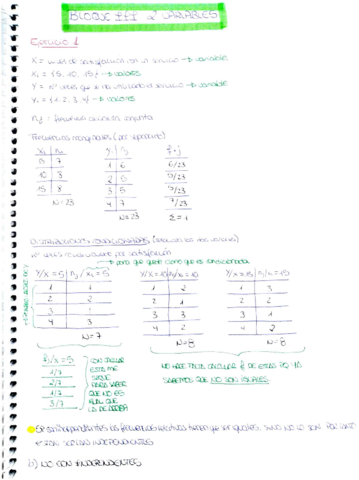 BLOQUE III 2 VARIABLES
Ejercicio 1
X = nivel de satisfacción con el servicio → variable
Xi = {5, 10, 15} → valores
Y = nº veces que ha utilizado el servicio → variable
Yi = {1, 2, 3, 4} → valores
nij = frecuencia absoluta conjunta
Frecuencias marginales (por separado)
xi ni
5 7
10 8
15 8
N=23
yi nj
1 6
2 5
3 5
4 7
N=23
f·j
6/23
5/23
5/23
7/23
Σ=1
DISTRIBUCIONES CONDICIONADAS
Nº veces condicionado por satisfacción
→ para que quede claro que es condicionada
Y/X=5 nj/xi=5
1 1
2 2
3 1
4 3
N=7
Y/X=10 nj/xi=10
1 2
2 1
3 3
4 2
N=8
Y/X=15 nj/xi=15
1 3
2 2
3 1
4 2
N=8
fj/x=5
1/7
2/7
1/7
3/7
CON CALCULAR
ESTA ME
SIRVE
PARA SABER
QUE NO ES
IGUAL QUE
LA DE ARRIBA
NO HACE FALTA CALCULAR f DE ESTAS PQ YA
SABEMOS QUE NO SON IGUALES
Si son independientes las frecuencias relativas tienen que ser iguales, sino no lo son. Por tanto
INDEPENDIENTES
b) NO SON INDEPENDIENTES